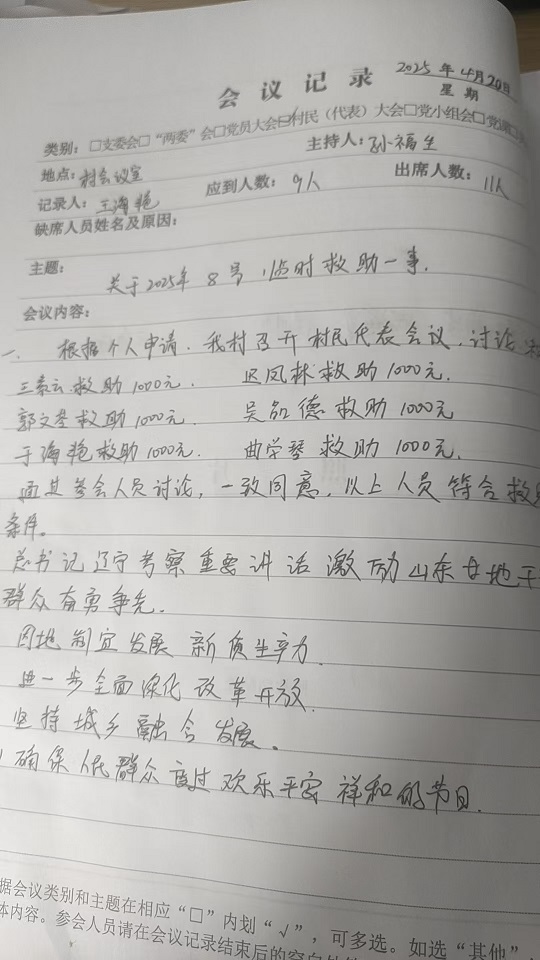 会议记录
2025年4月20日
星期
类别：□支委会□“两委”会□党员大会☑村民（代表）大会□党小组会□党课□
地点：村会议室
主持人：孙福生
记录人：王海艳
应到人数：9人
出席人数：11人
缺席人员姓名及原因：
主题：关于2025年8号临时救助一事.
会议内容：
一、根据个人申请.我村召开村民代表会议.讨论
王素云救助1000元. 迟凤林救助1000元.
郭文 救助1000元. 吴 德救助1000元
于海艳救助1000元. 曲学琴救助1000元.
参会人员讨论，一致同意，以上人员符合救
条件。
总书记辽宁考察重要讲话激励山东 地干
群众奋勇争先.
因地制宜发展新质生产力.
进一步全面深化改革开放.
坚持城乡融合发展。
确保人民群众度过欢乐平安祥和的节日.
据会议类别和主题在相应“□”内划“√”，可多选。如选“其他”，
体内容。参会人员请在会议记录结束后的空白处